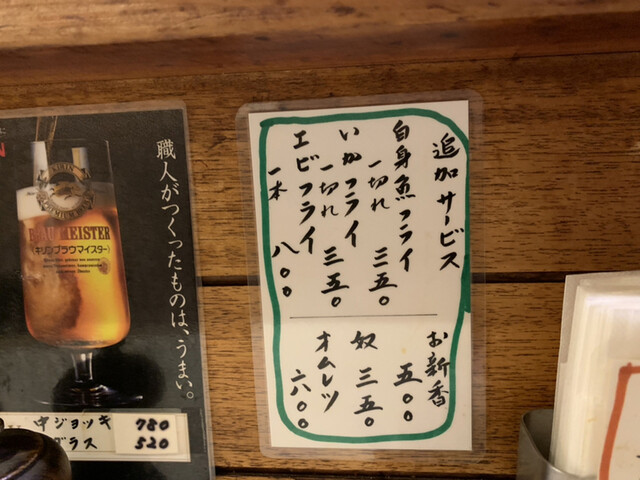 職人がつくったものは、うまい。
BRAUMEISTER
(キリンブラウマイスター)
中ジョッキ 780
グラス 520
追加サービス
白身魚フライ
一切れ 三五〇
いかフライ
一切れ 三五〇
エビフライ
一本 八〇〇
お新香
五〇〇
奴 三五〇
オムレツ
六〇〇